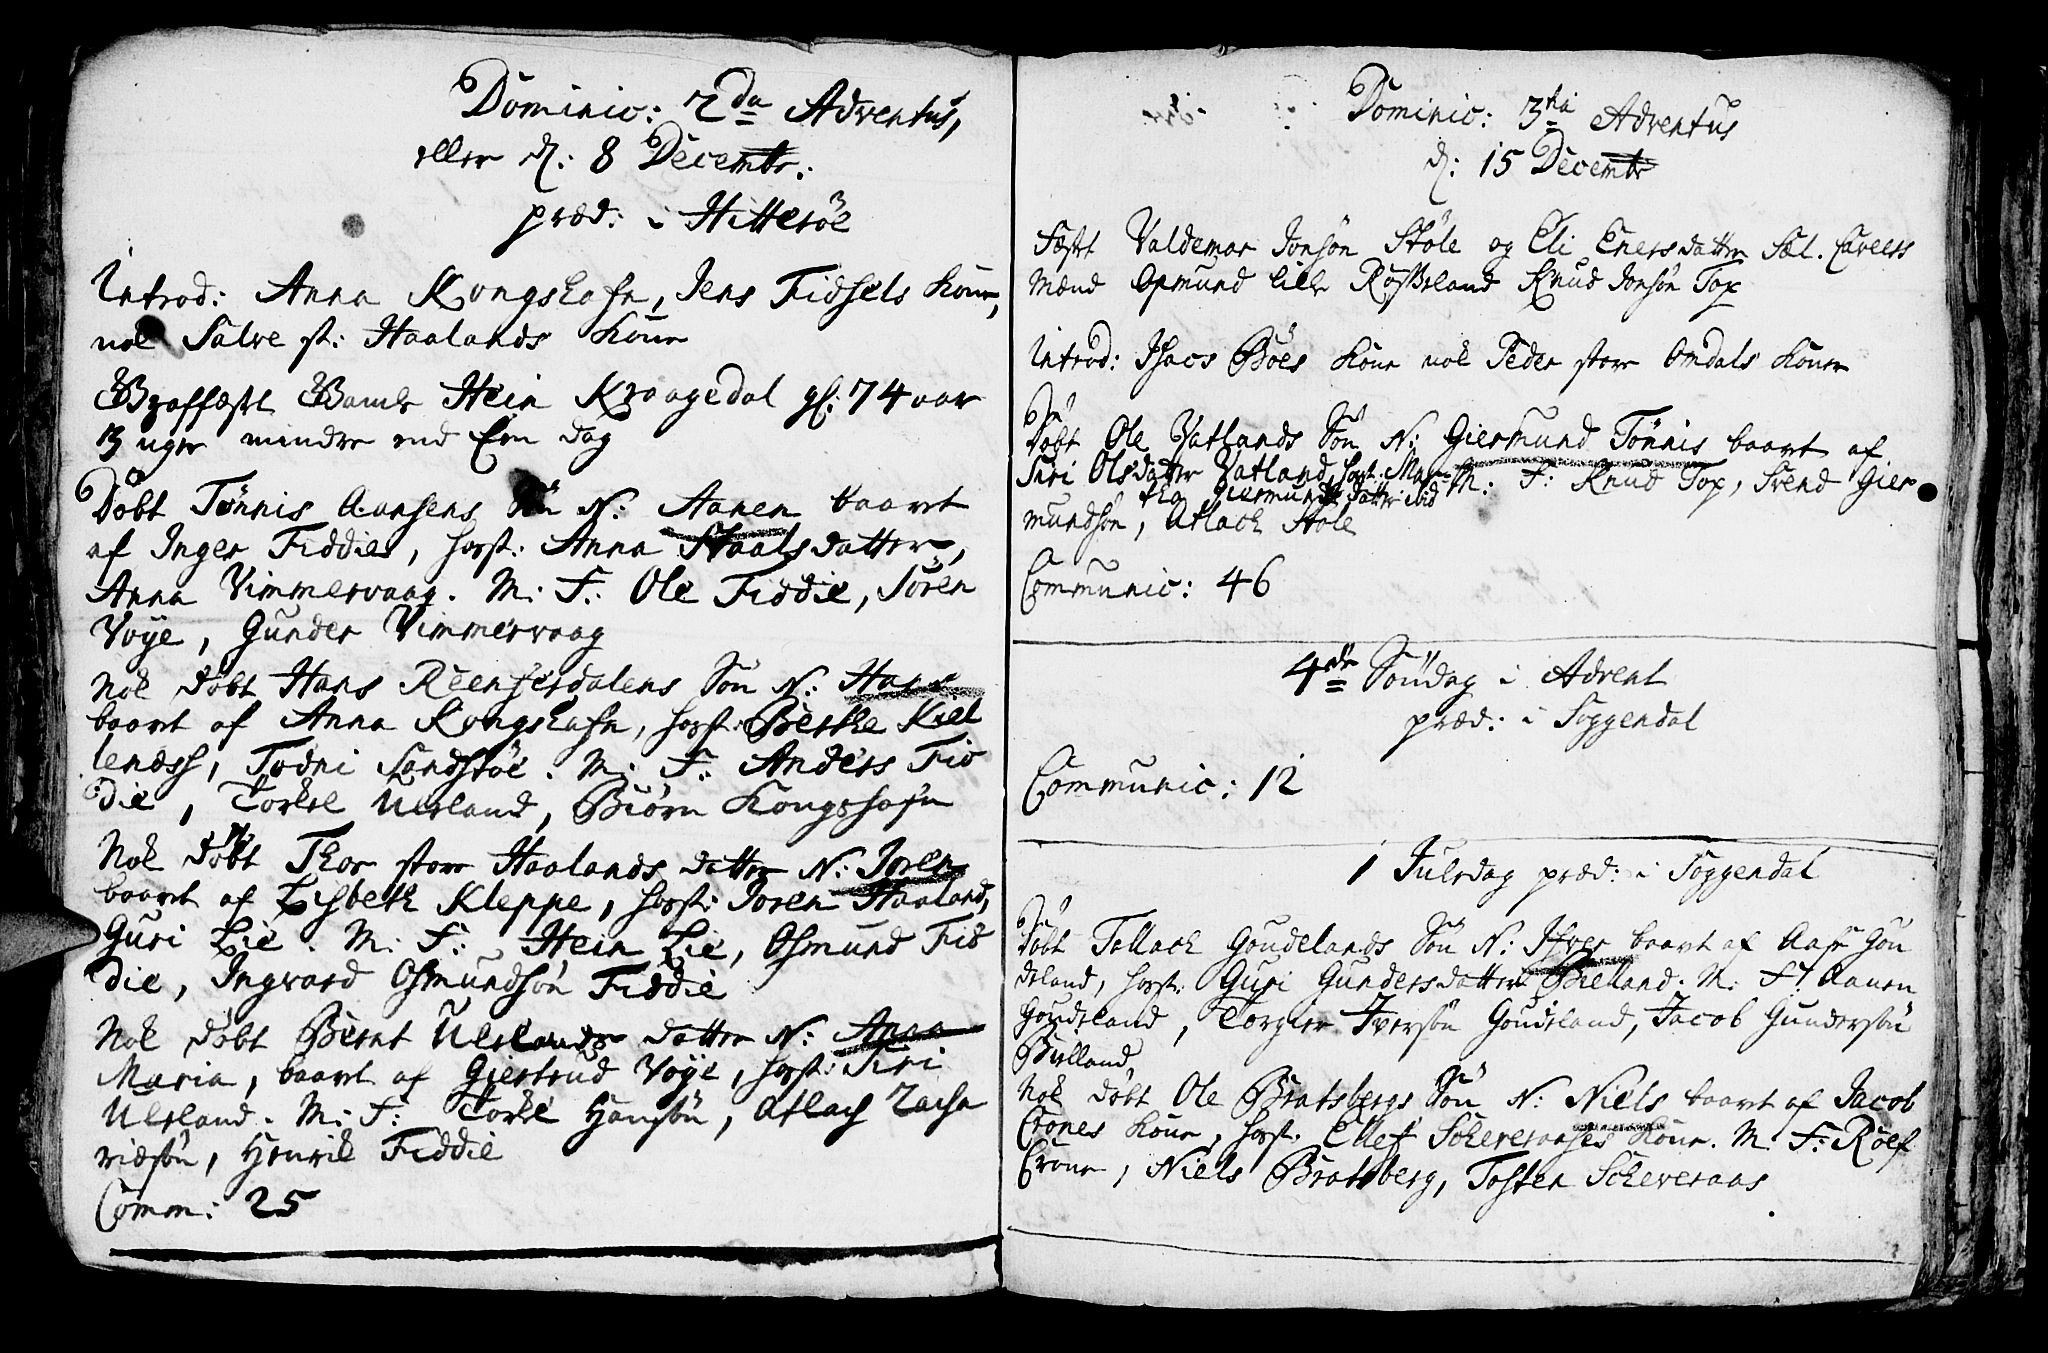 Dominic: 2da Adventus,
eller d: 8 Decembr:
præd: i Hitteröe
Introd: Anna Kongshafn, Jens Fidsels Kone,
nok Salve st: Haalands Kone
Begrafvest Hein Kraagedal gl: 74 aar
13 uger mindre end Een dag
Döbt Tönnis Aansens Sön N: Aanen baaret
af Inger Fiddie, host: Anna Staalsdatter,
Anna Vimmervaag. M: F: Ole Fiddie, Sören
Voye, Gunder Vimmervaag
Nok döbt Hans Reenferdalens Sön N: Hans
baaret af Anna Kongshafn, host: Berthe Kiel
lendss, Todni Sandstöe. M: F: Anders Fid
die, Torkel Ulsland, Biörn Kongshafn
Nok döbt Thor store Haalands datter N: Joren
baaret af Lisbeth Kleppe, host: Joren Haaland,
Guri Lie. M: F: Hein Lie, Osmund Fid
die, Ingvard Osmundsön Fiddie
Nok döbt Bernt Ulslands datter N: Anna
Maria, baaret af Giertrud Voye, host: Siri
Ulsland. M: F: Torkel Hansön, Atlach Zacha
riæsön, Henrik Fiddie
Comm: 25
Dominic: 3tia Adventus
d: 15 Decembr
Fæstet Valdemar Jonsön Stöle og Eli Enersdatter Sæl. Caveers
mænd Osmund lille Röstzland Knud Jonsön Top
Introd: Isacs Böes Kone nok Peder store Omdals Kone
Döbt Ole Vatlands Sön N: Giermund Tönnis baaret af
Siri Olsdatter Vatland, host: Mar-
tha Giermunds datter ibid M: F: Knud Top, Svend Gier
mundsön, Atlach Stöle
Communic: 46
4de Söndag i Advent
præd: i Soggendal
Communic: 12
1 Juledag præd: i Soggendal
Döbt Tollach Goudelands Sön N: Ifver baaret af Aase Gou
deland, host: Guri Gundersdatter Bielland. M: F: Aanen
Goudeland, Torgier Iversön Goudeland, Jacob Gundersön
Bielland,
Nok döbt Ole Bratsbergs Sön N: Niels baaret af Jacob
Crones Kone, host: Ellef Scheveraases Kone. M: F: Roef
Crone, Niels Bratsberg, Tosten Scheveraas